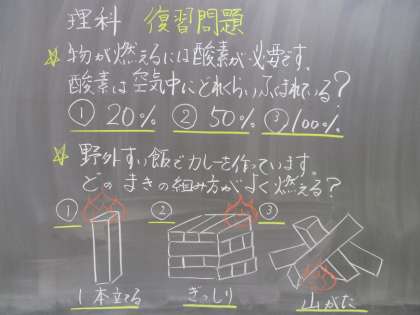 理科 復習問題
☆物が燃えるには酸素が必要です。
酸素は空気中にどれくらいふくまれている?
① 20% ② 50% ③ 100%
☆野外すい飯でカレーを作っています。
どのまきの組み方がよく燃える?
① ② ③
1本立てる ぎっしり 山がた